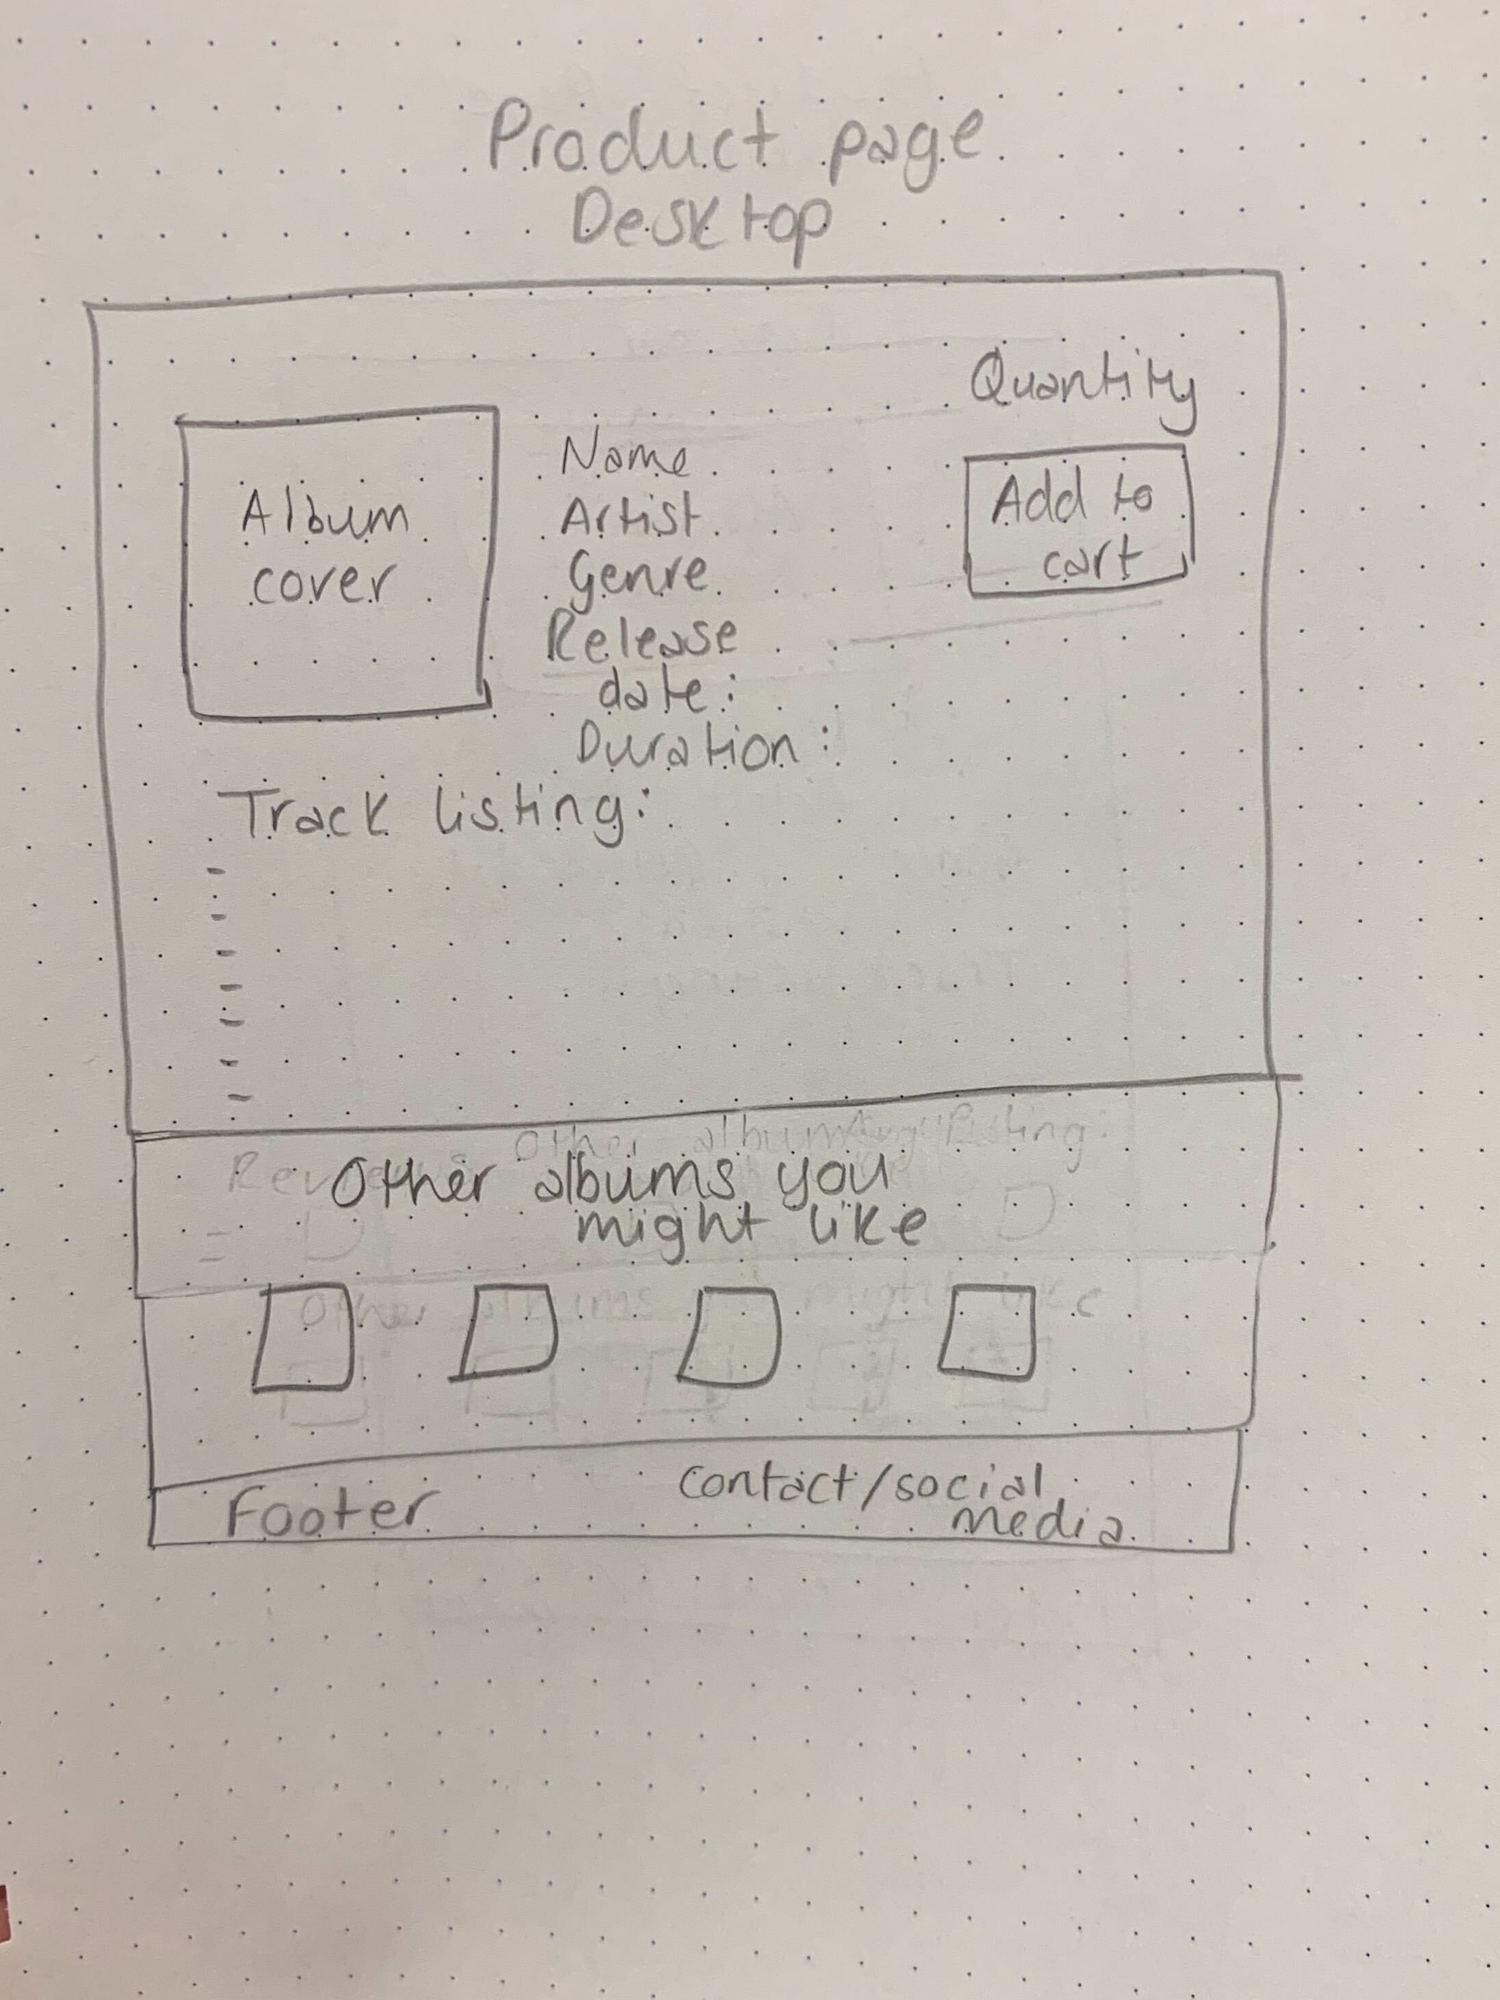 Product page
Desktop
Quantity
Album
cover
Name
Artist
Genre
Release
date:
Duration:
Add to
cart
Track listing:
-
-
-
-
-
-
-
Other albums you
might like
Other albums might like
Footer
contact/social
media